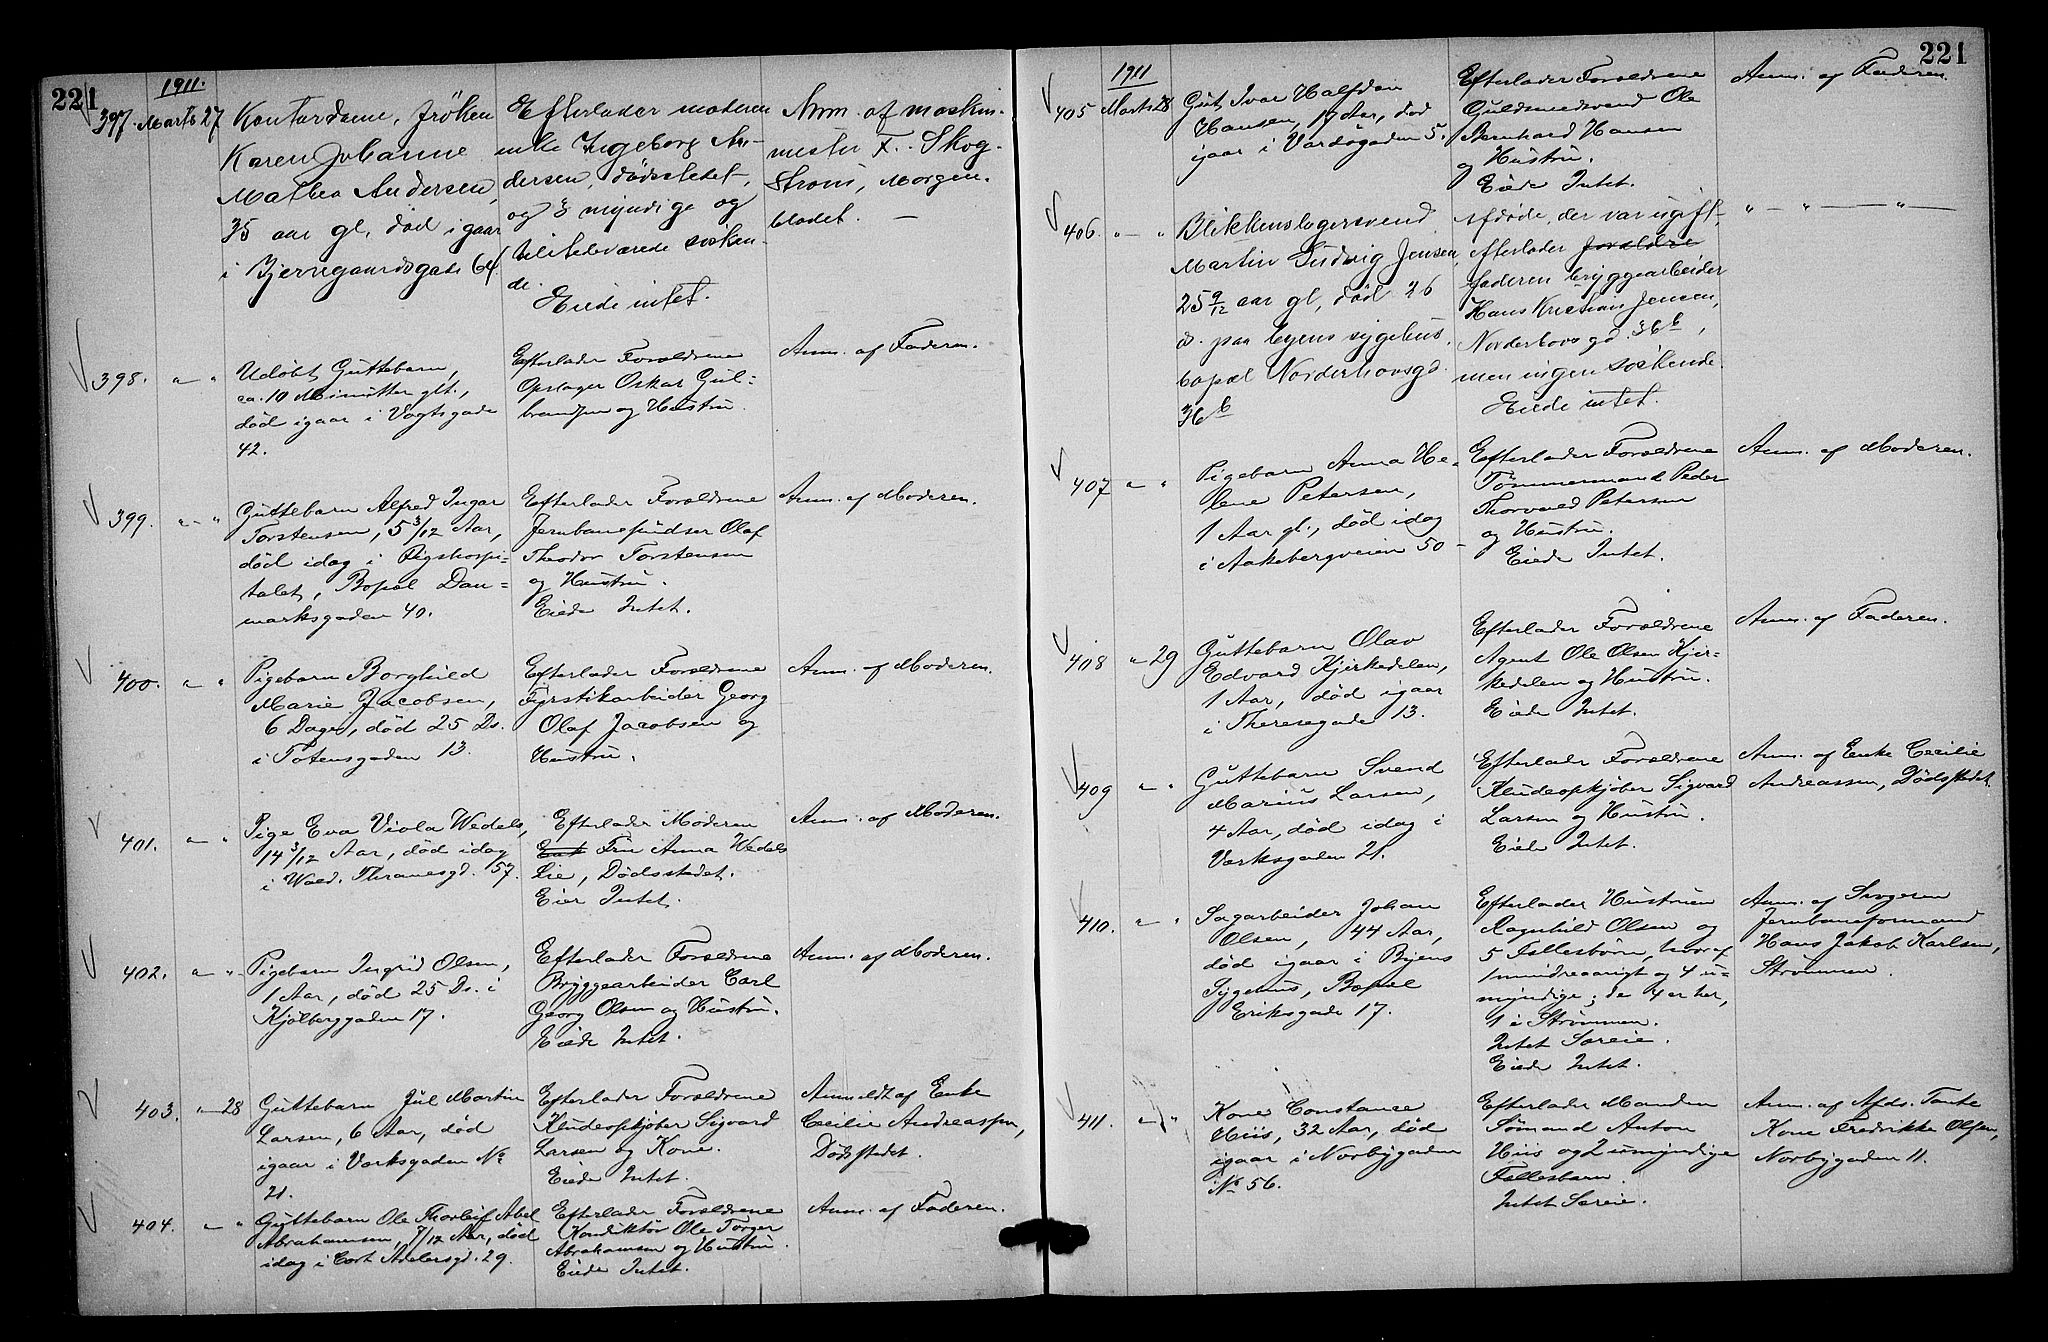 221
1911.
397. Marts 27
Kontordame, frøken
Karen Johanne
Mathea Andersen,
35 aar gl, død igaar
i Bjerregaardsgate 64.
Efterlader moderen
enke Ingeborg An-
dersen, dødsstedet,
og 3 myndige og
tilstedeværede søsken-
de.
Eiede intet.
Anm af maskin-
mester F. Skog-
strøm, Morgen-
bladet. —
398. " "
Udøbt Guttebarn,
ca. 10 Minutter glt.,
død igaar i Vogtsgade
42.
Efterlader Forældrene
Opslager Oskar Gul=
brandsen og Hustru.
Anm. af Faderen.
399. " - "
Guttebarn Alfred Ingar
Torstensen, 5 3/12 Aar,
død idag i Rigshospi=
talet, Bopæl Dan=
marksgaden 40.
Efterlader Forældrene
Jernbanepudser Olaf
Theodor Torstensen
og Hustru.
Eiede Intet.
Anm. af Moderen.
400. " "
Pigebarn Borghild
Marie Jacobsen,
6 Dage, død 25 Ds.
i Totensgaden 13.
Efterlader Forældrene
Fyrstikarbeider Georg
Olaf Jacobsen og
Hustru.
Anm. af Moderen.
401. " "
Pige Eva Viola Wedels,
14 3/12 Aar, død idag
i Wald. Thranesgd. 57.
Efterlader Moderen
Enk Fru Anna Wedels
Lie, Dødsstedet.
Eier Intet.
Anm. af Moderen.
402. " "
Pigebarn Ingrid Olsen,
1 Aar, død 25 Ds. i
Kjølberggaden 17.
Efterlader Forældrene
Bryggearbeider Carl
Georg Olsen og Hustru.
Eiede Intet.
Anm. af Moderen.
403. " 28
Guttebarn Jul Martin
Larsen, 6 Aar, død
igaar i Værksgaden No
21.
Efterlader Forældrene
Kludeopkjøber Sigvard
Larsen og Kone.
Eiede Intet.
Anmeldt af Enke
Cecilie Andreassen,
Dødsstedet.
404. " "
Guttebarn Ole Thorleif Abel
Abrahamsen, 7/12 Aar, død
idag i Cort Adelersgd. 29.
Efterlader Forældrene
Konduktør Ole Torger
Abrahamsen og Hustru.
Eiede Intet.
Anm. af Faderen.
221
1911
405 Marts 28
Gut Ivar Halfdan
Hansen, 17 Aar, død
igaar i Vardøgaden 5.
Efterlader Forældrene
Guldsmedsvend Ole
Bernhard Hansen
og Hustru.
Eiede Intet.
Anm. af Faderen.
406. " - "
Blikkenslagersvend
Martin Ludvig Jensen,
25 9/12 aar gl, død 26
ds. paa byens sygehus.
bopæl Norderhovsgd.
36 b
Afdøde, der var ugift,
efterlader forældre
faderen bryggearbeider
Hans Kristian Jensen,
Norderhovsgd. 36 b,
men ingen søskende.
Eiede intet.
" — " — " —
407 " "
Pigebarn Anna He-
lene Petersen,
1 Aar gl., død idag
i Aakebergveien 50 -
Efterlader Forældrene
Tømmermand Peder
Thorvald Petersen
og Hustru.
Eiede Intet.
Anm. af Moderen.
408 " 29
Guttebarn Olav
Edvard Kjirkedelen,
1 Aar, død igaar
i Theresegade 13.
Efterlader Forældrene
Agent Ole Olsen Kjir=
kedelen og Hustru.
Eiede Intet.
Anm. af Faderen.
409 " "
Guttebarn Svend
Marius Larsen,
4 Aar, død idag i
Værksgaden 21.
Efterlader Forældrene
Kludeopkjøber Sigvard
Larsen og Hustru.
Eiede Intet.
Anm. af Enke Cecilie
Andreassen, Dødsstedet.
410. " "
Sagarbeider Johan
Olsen, 44 Aar,
død igaar i Byens
Sygehus, Bopæl
Eriksgade 17.
Efterlader Hustruen
Ragnhild Olsen og
5 Fællesbørn, hvoraf
1 mindreaarigt og 4 u=
myndige; de 4 er her,
1 i Strømmen.
Intet Særeie.
Eiede Intet.
Anm. af Svogeren
Jernbaneformand
Hans Jakob Karlsen,
Strømmen.
411. " "
Kone Constance
Hiis, 32 Aar, død
igaar i Norbygaden
No 56.
Efterlader Manden
Sømand Anton
Hiis og 2 umyndige
Fællesbarn.
Intet Særeie.
Anm. af Afds. Tante
Kone Fredrikke Olsen,
Norbygaden 11.